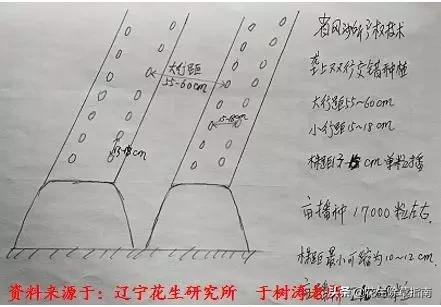 大行距
55-60cm
15-18cm
13-15cm
垄上双行交错种植
大行距55~60cm
小行距15~18cm
cm 单粒播
亩播种17000粒左右
株距最小可缩为10~12cm.
资料来源于：辽宁花生研究所 于树涛老师
头条
指南